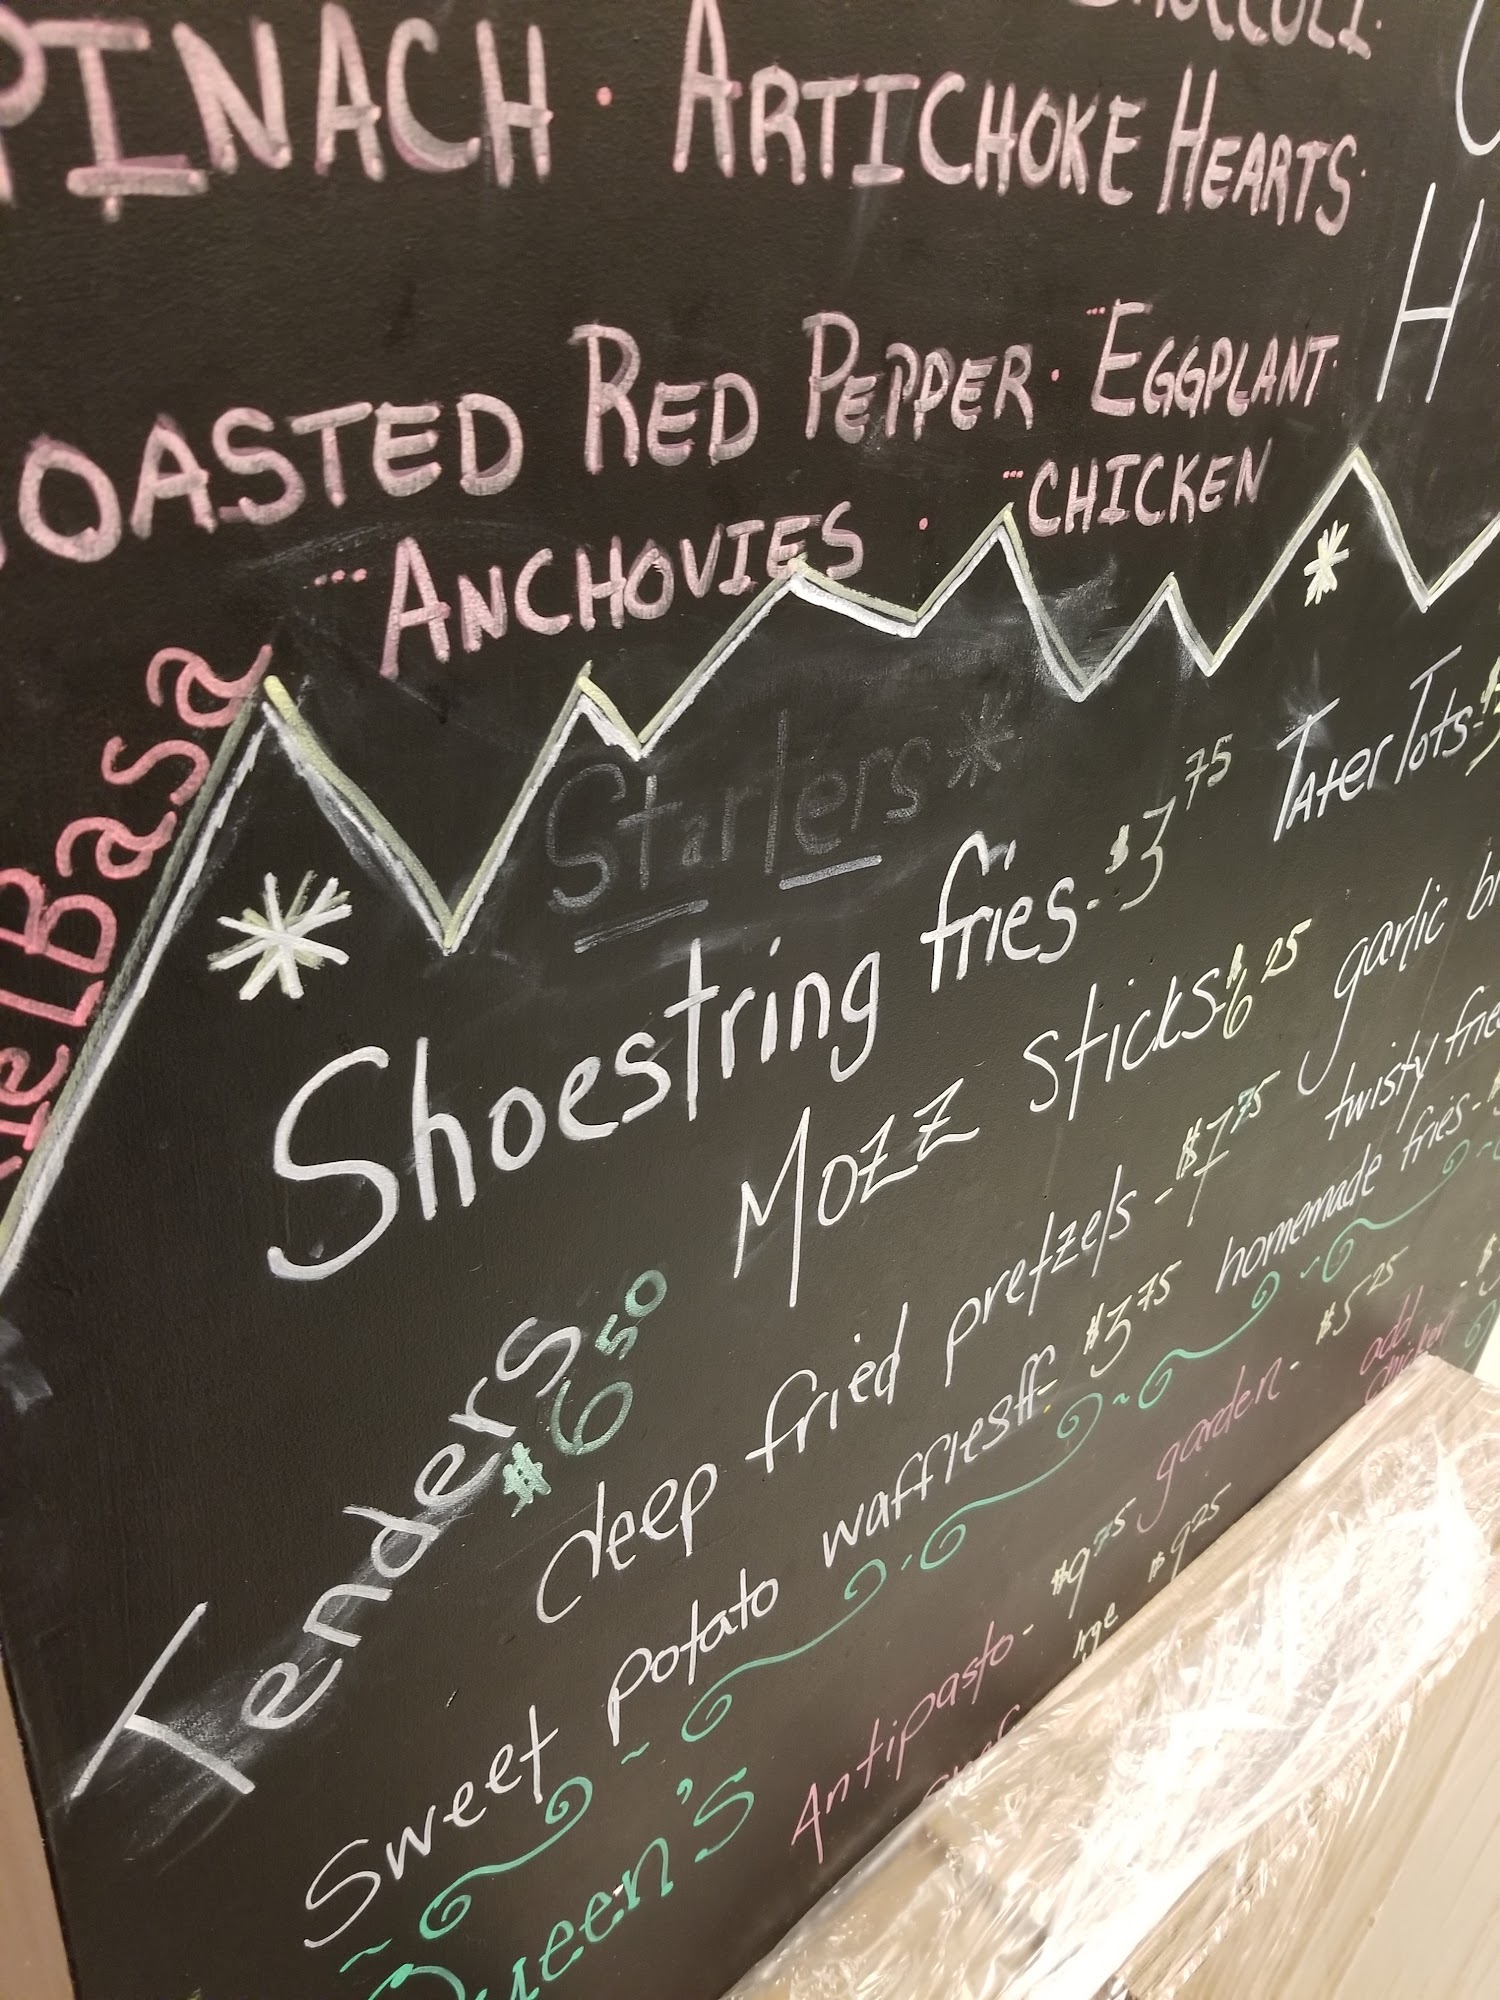 PINACH · ARTICHOKE HEARTS·
OASTED RED PEPPER · EGGPLANT·
ANCHOVIES · CHICKEN
H
Starters
Shoestring fries - $3.75 TATER TOTS -
Mozz Sticks - $6.25 garlic
Tenders $6.50
deep fried pretzels - $7.75 twisty
sweet potato waffles - $3.75 homemade fries -
Queen's
Antipasto - $9.75 garden - $5.25 add chicken
lrge $9.25